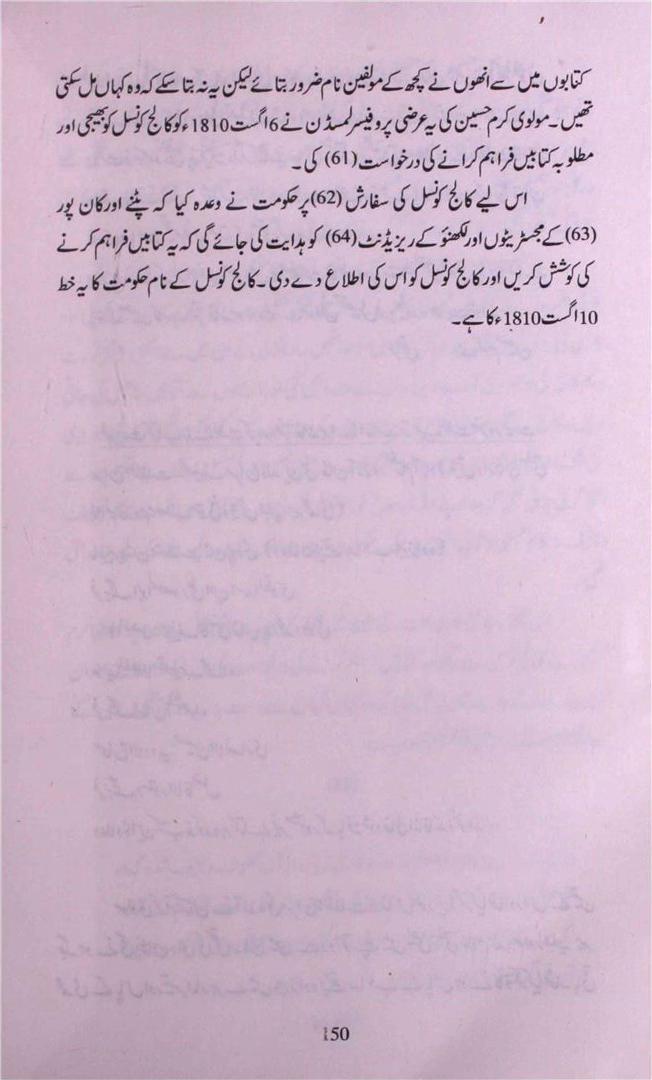 کتابوں میں سے انھوں نے کچھ کے مولفین نام ضرور بتائے لیکن یہ نہ بتا سکے کہ وہ کہاں مل سکتی
تھیں۔ مولوی کرم حسین کی یہ عرضی پروفیسر لمسڈن نے 6 اگست 1810ء کو کالج کونسل کو بھیجی اور
مطلوبہ کتابیں فراہم کرانے کی درخواست (61) کی۔
اس لیے کالج کونسل کی سفارش (62) پر حکومت نے وعدہ کیا کہ پٹنے اور کان پور
(63) کے مجسٹریٹوں اور لکھنؤ کے ریزیڈنٹ (64) کو ہدایت کی جائے گی کہ یہ کتابیں فراہم کرنے
کی کوشش کریں اور کالج کونسل کو اس کی اطلاع دے دی۔ کالج کونسل کے نام حکومت کا یہ خط
10 اگست 1810ء کا ہے۔
150